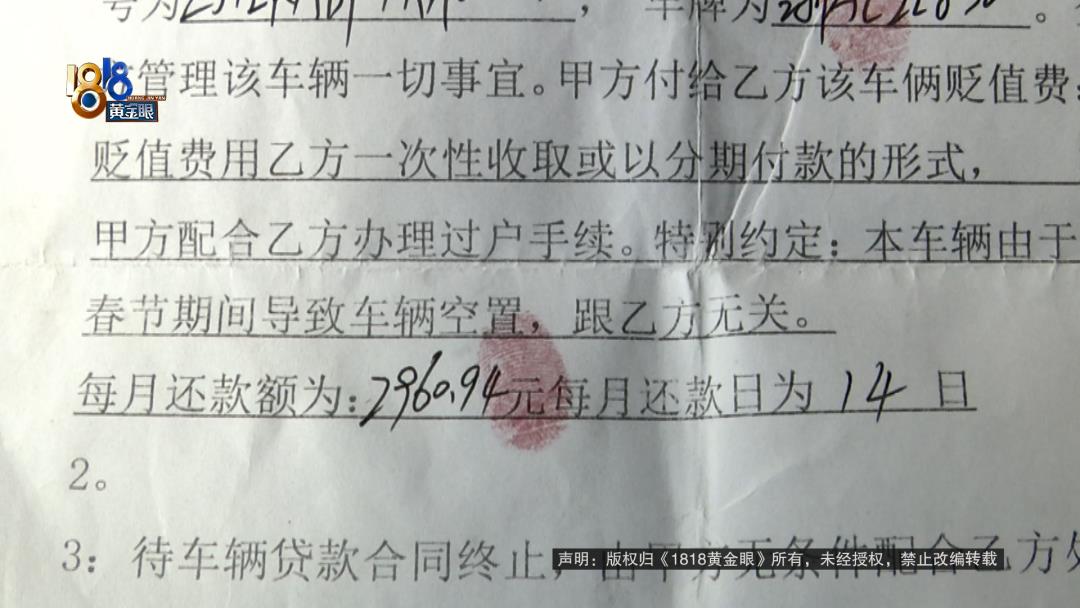 号为 ，车牌为 。
1818
黄金眼
管理该车辆一切事宜。甲方付给乙方该车俩贬值费；
贬值费用乙方一次性收取或以分期付款的形式，
甲方配合乙方办理过户手续。特别约定：本车辆由于
春节期间导致车辆空置，跟乙方无关。
每月还款额为：2960.94元每月还款日为 14 日
2。
3：待车辆贷款合同终止，由甲方无条件配合乙方
声明：版权归《1818黄金眼》所有，未经授权，禁止改编转载